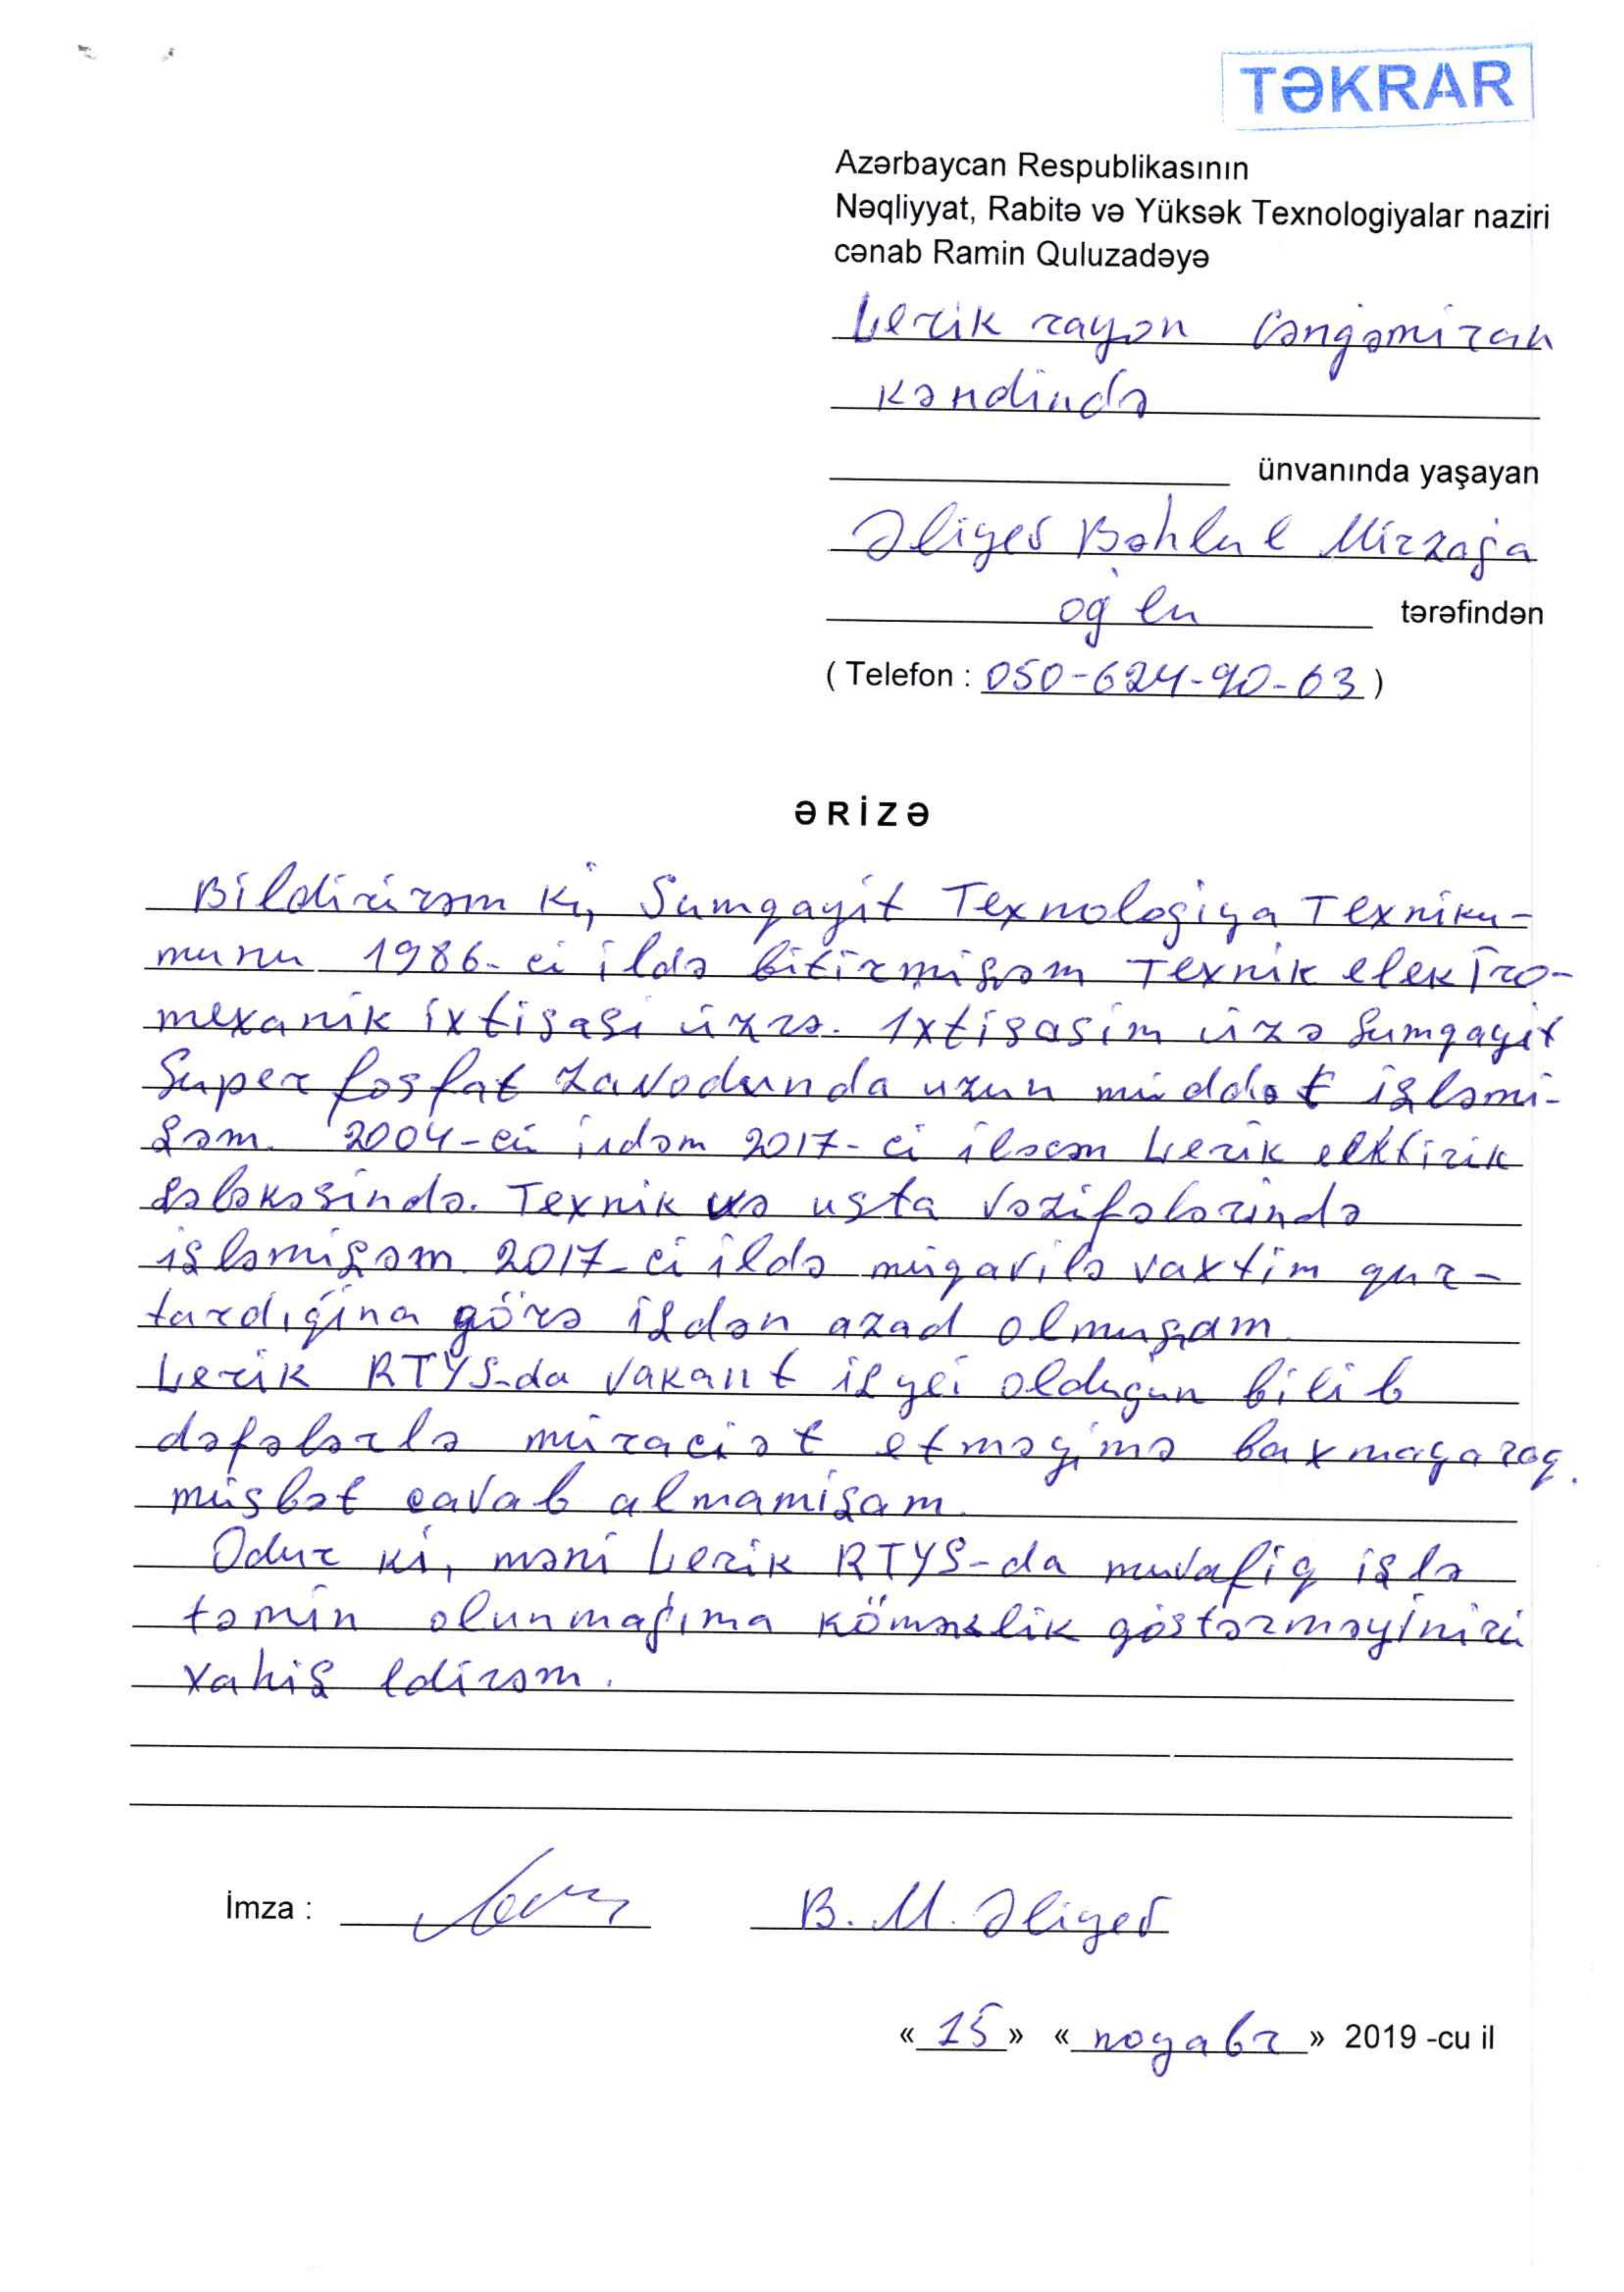 TƏKRAR
Azərbaycan Respublikasının
Nəqliyyat, Rabitə və Yüksək Texnologiyalar naziri
cənab Ramin Quluzadəyə
Lerik rayon Cəngəmiran
kəndində
ünvanında yaşayan
Əliyev Bəhlul Mirzağa
oğlu tərəfindən
( Telefon : 050-624-90-63 )
ƏRİZƏ
Bildirirəm ki, Sumqayıt Texnologiya Texniku-
munu 1986-ci ildə bitirmişəm Texnik elektro-
mexanik ixtisası üzrə. Ixtisasim üzə Sumqayıt
Super fosfat zavodunda uzun müddət işləmi-
şəm. 2004-cü ildəm 2017-ci iləcən Lerik elktirik
şəbəkəsində. Texnik və usta vəzifələrində
işləmişəm. 2017-ci ildə müqavilə vaxtim qur-
tardığına görə işdən azad olmuşam.
Lerik RTYS-da vakant iş yei olduğun bilib
dəfələrlə müraciət etməyimə baxmayaraq.
müsbət cavab almamişam.
Odur ki, məni Lerik RTYS-da muvafiq işlə
təmin olunmağıma köməklik göstərməyinizi
xahiş edirəm.
İmza : B. M. Əliyev
« 15 » « noyabr » 2019 -cu il